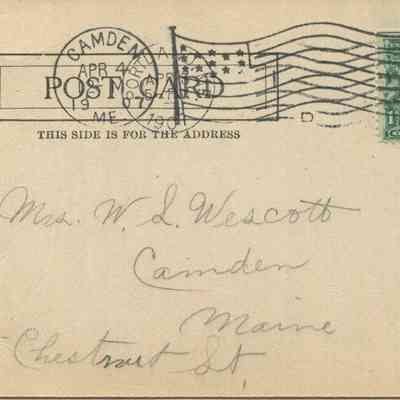 CAMDEN
APR 4
1907
ME
POST CARD
THIS SIDE IS FOR THE ADDRESS
D
Mrs. W. S. Wescott
Camden
Maine
Chestnut St.